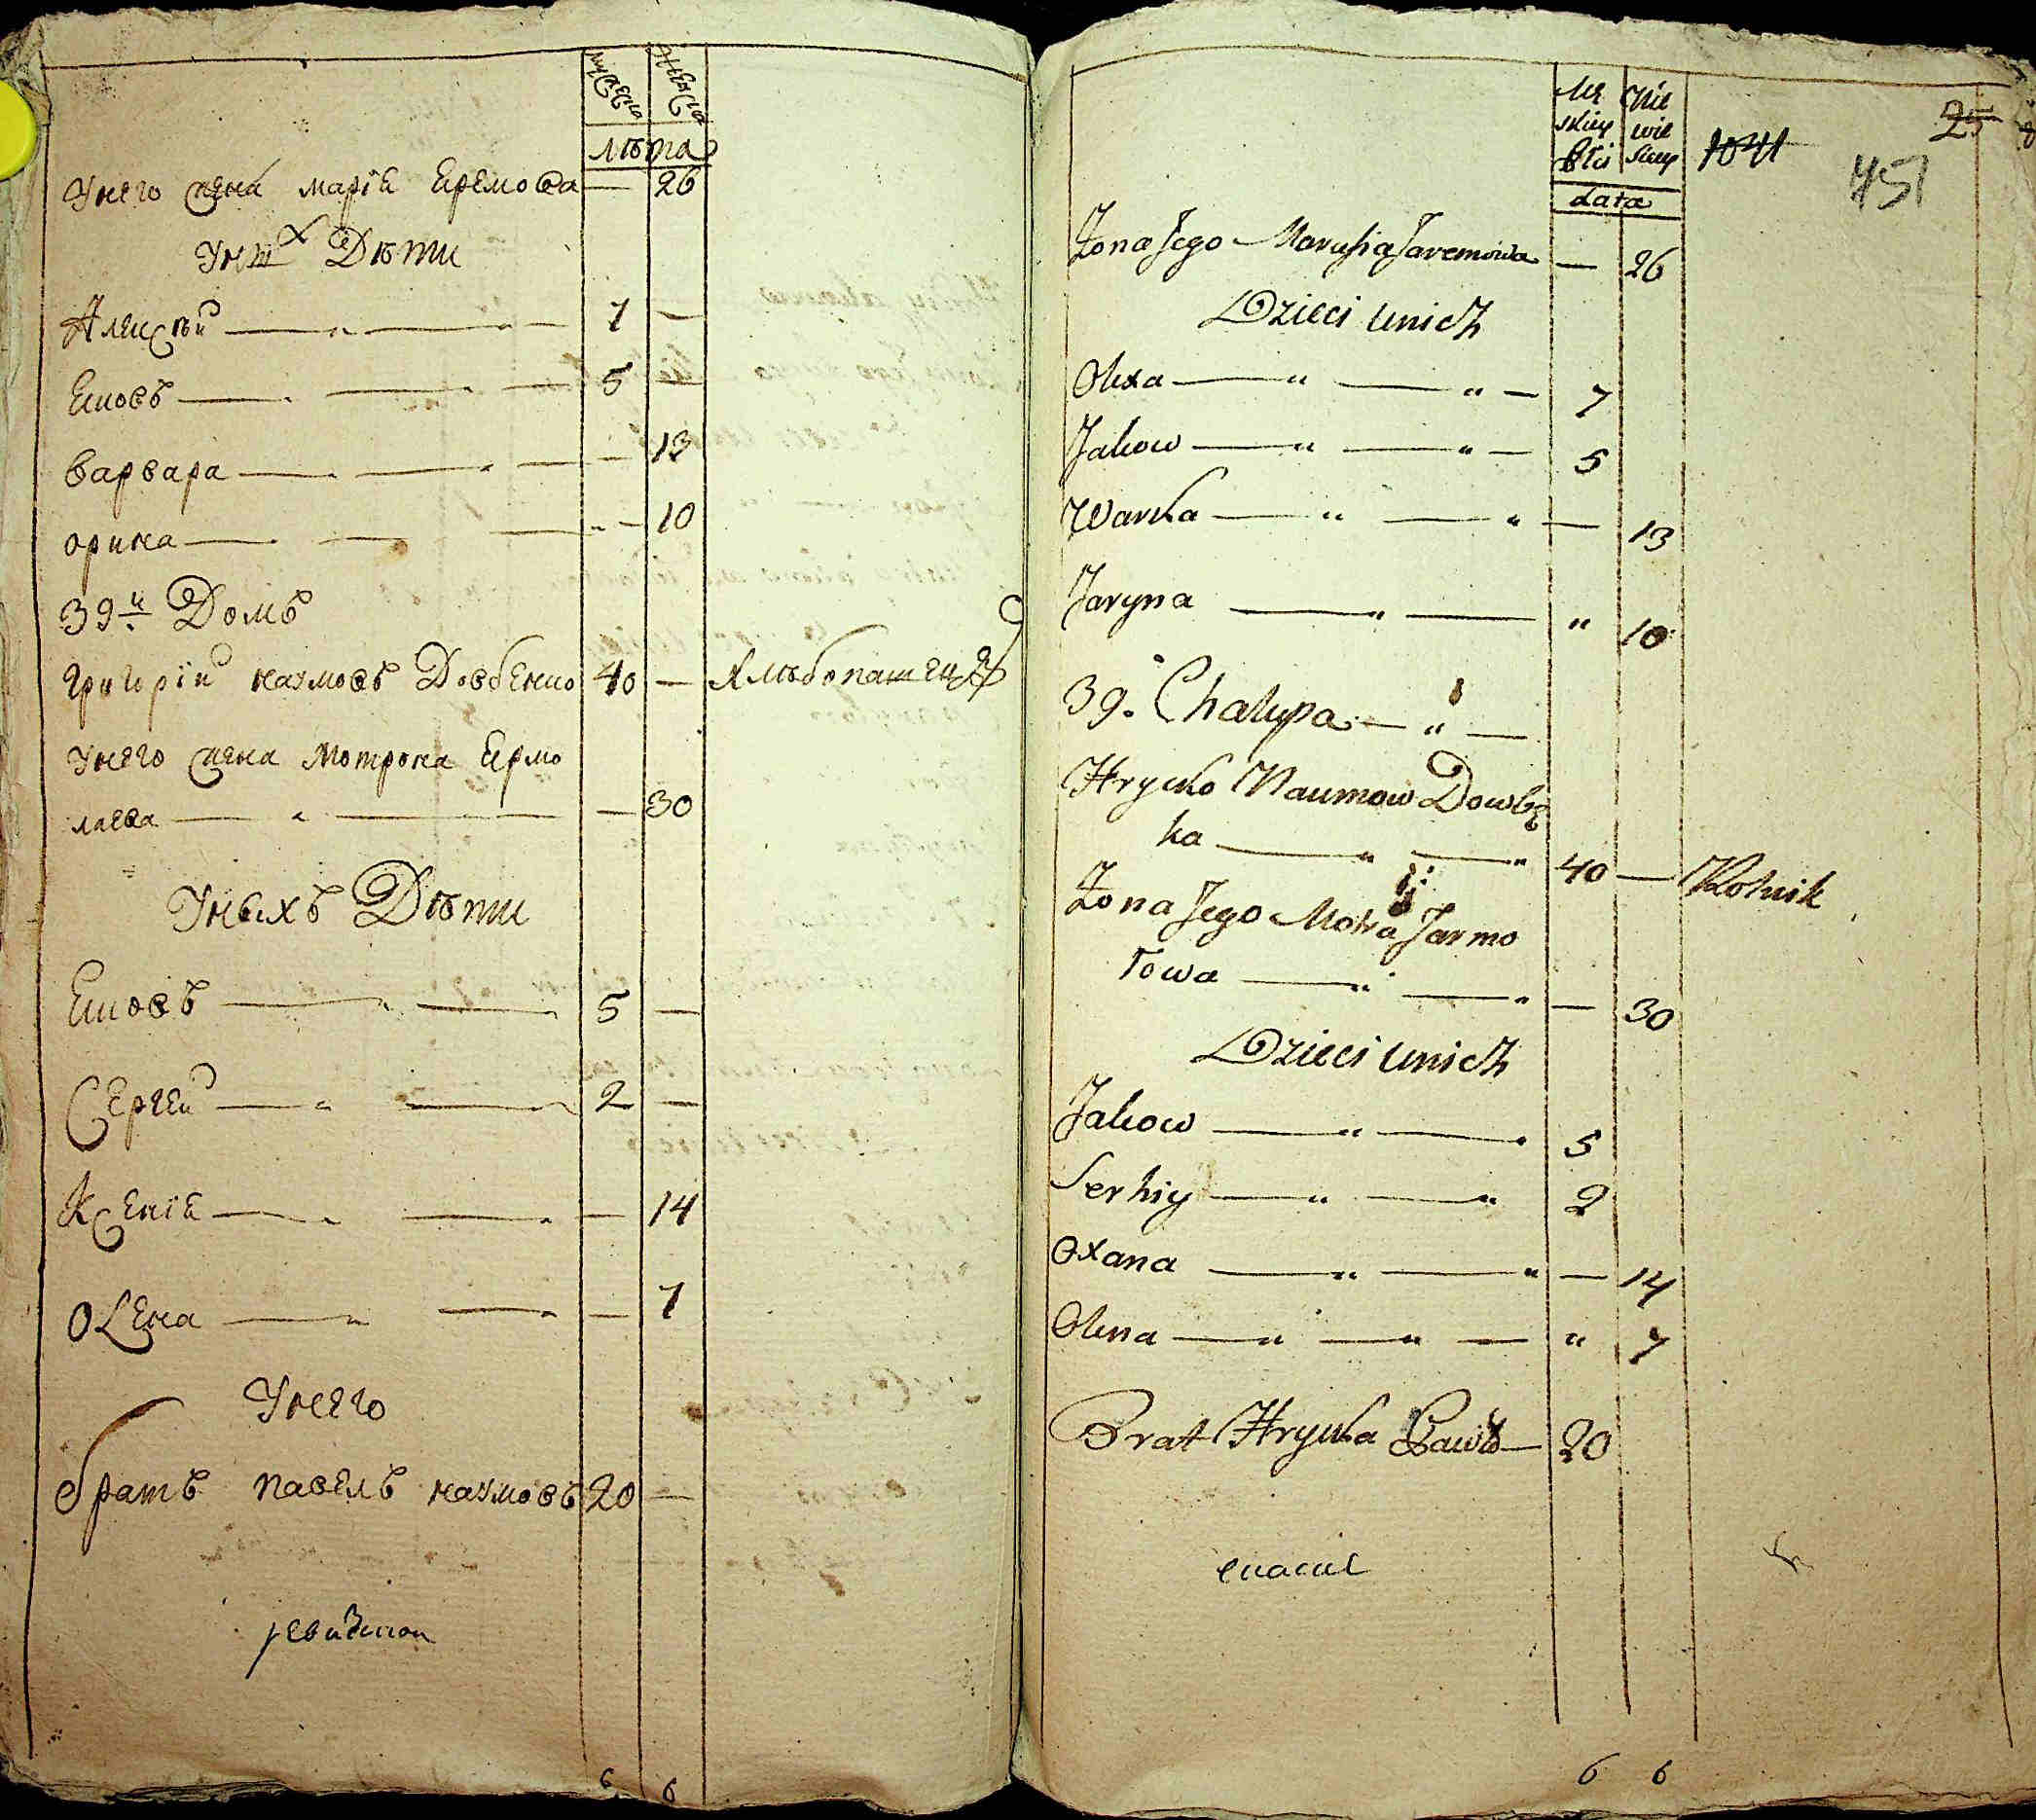 мужеска женска
лѣта
Унего жена марïя Еремова — 26
Унихъ Дѣти
Алексѣй — 7 —
Яковъ — 5 —
варвара — 13
орина — 10
39й Домъ
григорïй наумовъ Довбенко 40 — Хлѣбопашецъ
Унего жена мотрона Ярмо
лаева — 30
Унихъ Дѣти
Яковъ — 5 —
Сергей — 2 —
Ксенïя — 14
олена — 7
Унего
братъ павелъ наумовъ 20 —
6 6
25
451
Mę Nie
skiey wie
płci skiey
Lata
Żona Jego Marusia Jaremowa — 26
Dzieci unich
Olexa — 7
Jakow — 5
Warka — 13
Jaryna — " 10
39. Chałupa — " —
Hryćko Naumow Dowbę
ka — 40 — Rolnik
Żona Jego Motra Jarmo
łowa — 30
Dzieci unich
Jakow — 5
Serhiy — 2
Oxana — 14
Olena — " 7
Brat Hryćka Pawło — 20
6 6